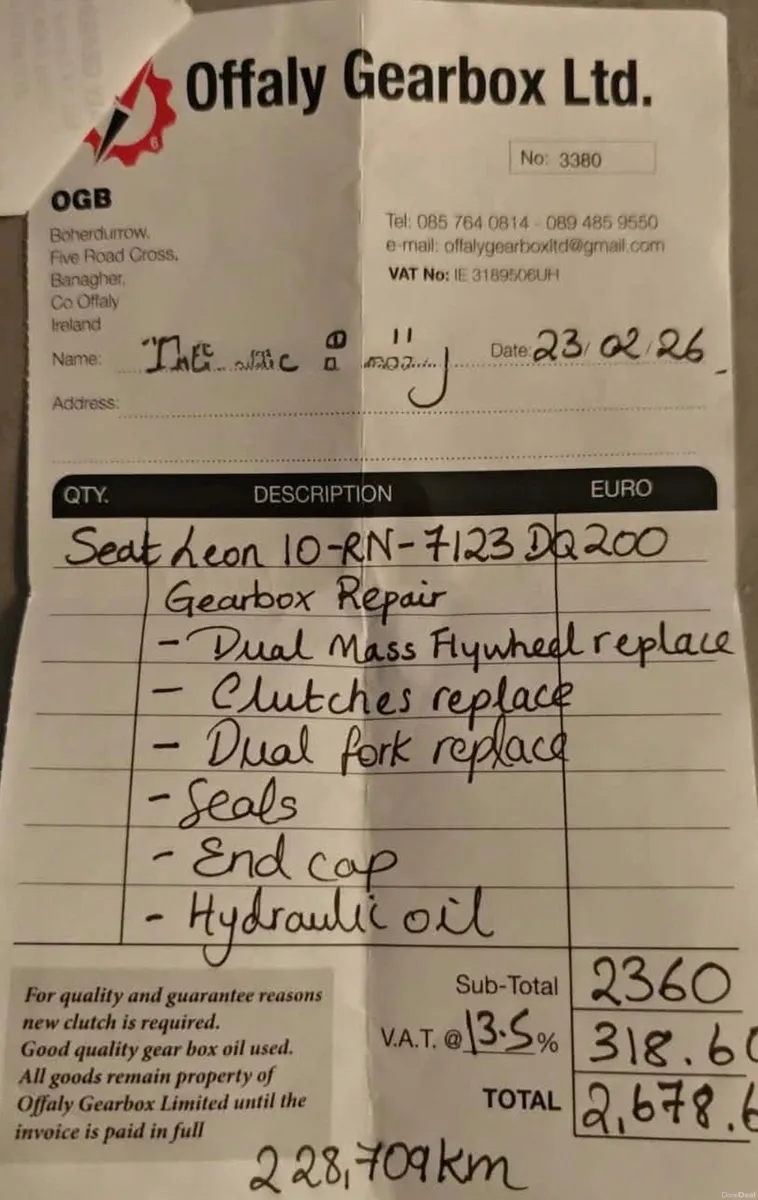 Offaly Gearbox Ltd.
6
No: 3380
OGB
Boherdurrow,
Five Road Cross,
Banagher,
Co Offaly
Ireland
Tel: 085 764 0814 - 089 485 9550
e-mail: offalygearboxltd@gmail.com
VAT No: IE 3189506UH
Name:
Date: 23/02/26
Address:
QTY. DESCRIPTION EURO
Seat Leon 10-RN-7123 DQ200
Gearbox Repair
- Dual Mass Flywheel replace
- Clutches replace
- Dual fork replace
- Seals
- End cap
- Hydraulic oil
For quality and guarantee reasons
new clutch is required.
Good quality gear box oil used.
All goods remain property of
Offaly Gearbox Limited until the
invoice is paid in full
Sub-Total 2360
V.A.T. @ 13.5% 318.60
TOTAL 2,678.6
228,709km
DoneDeal